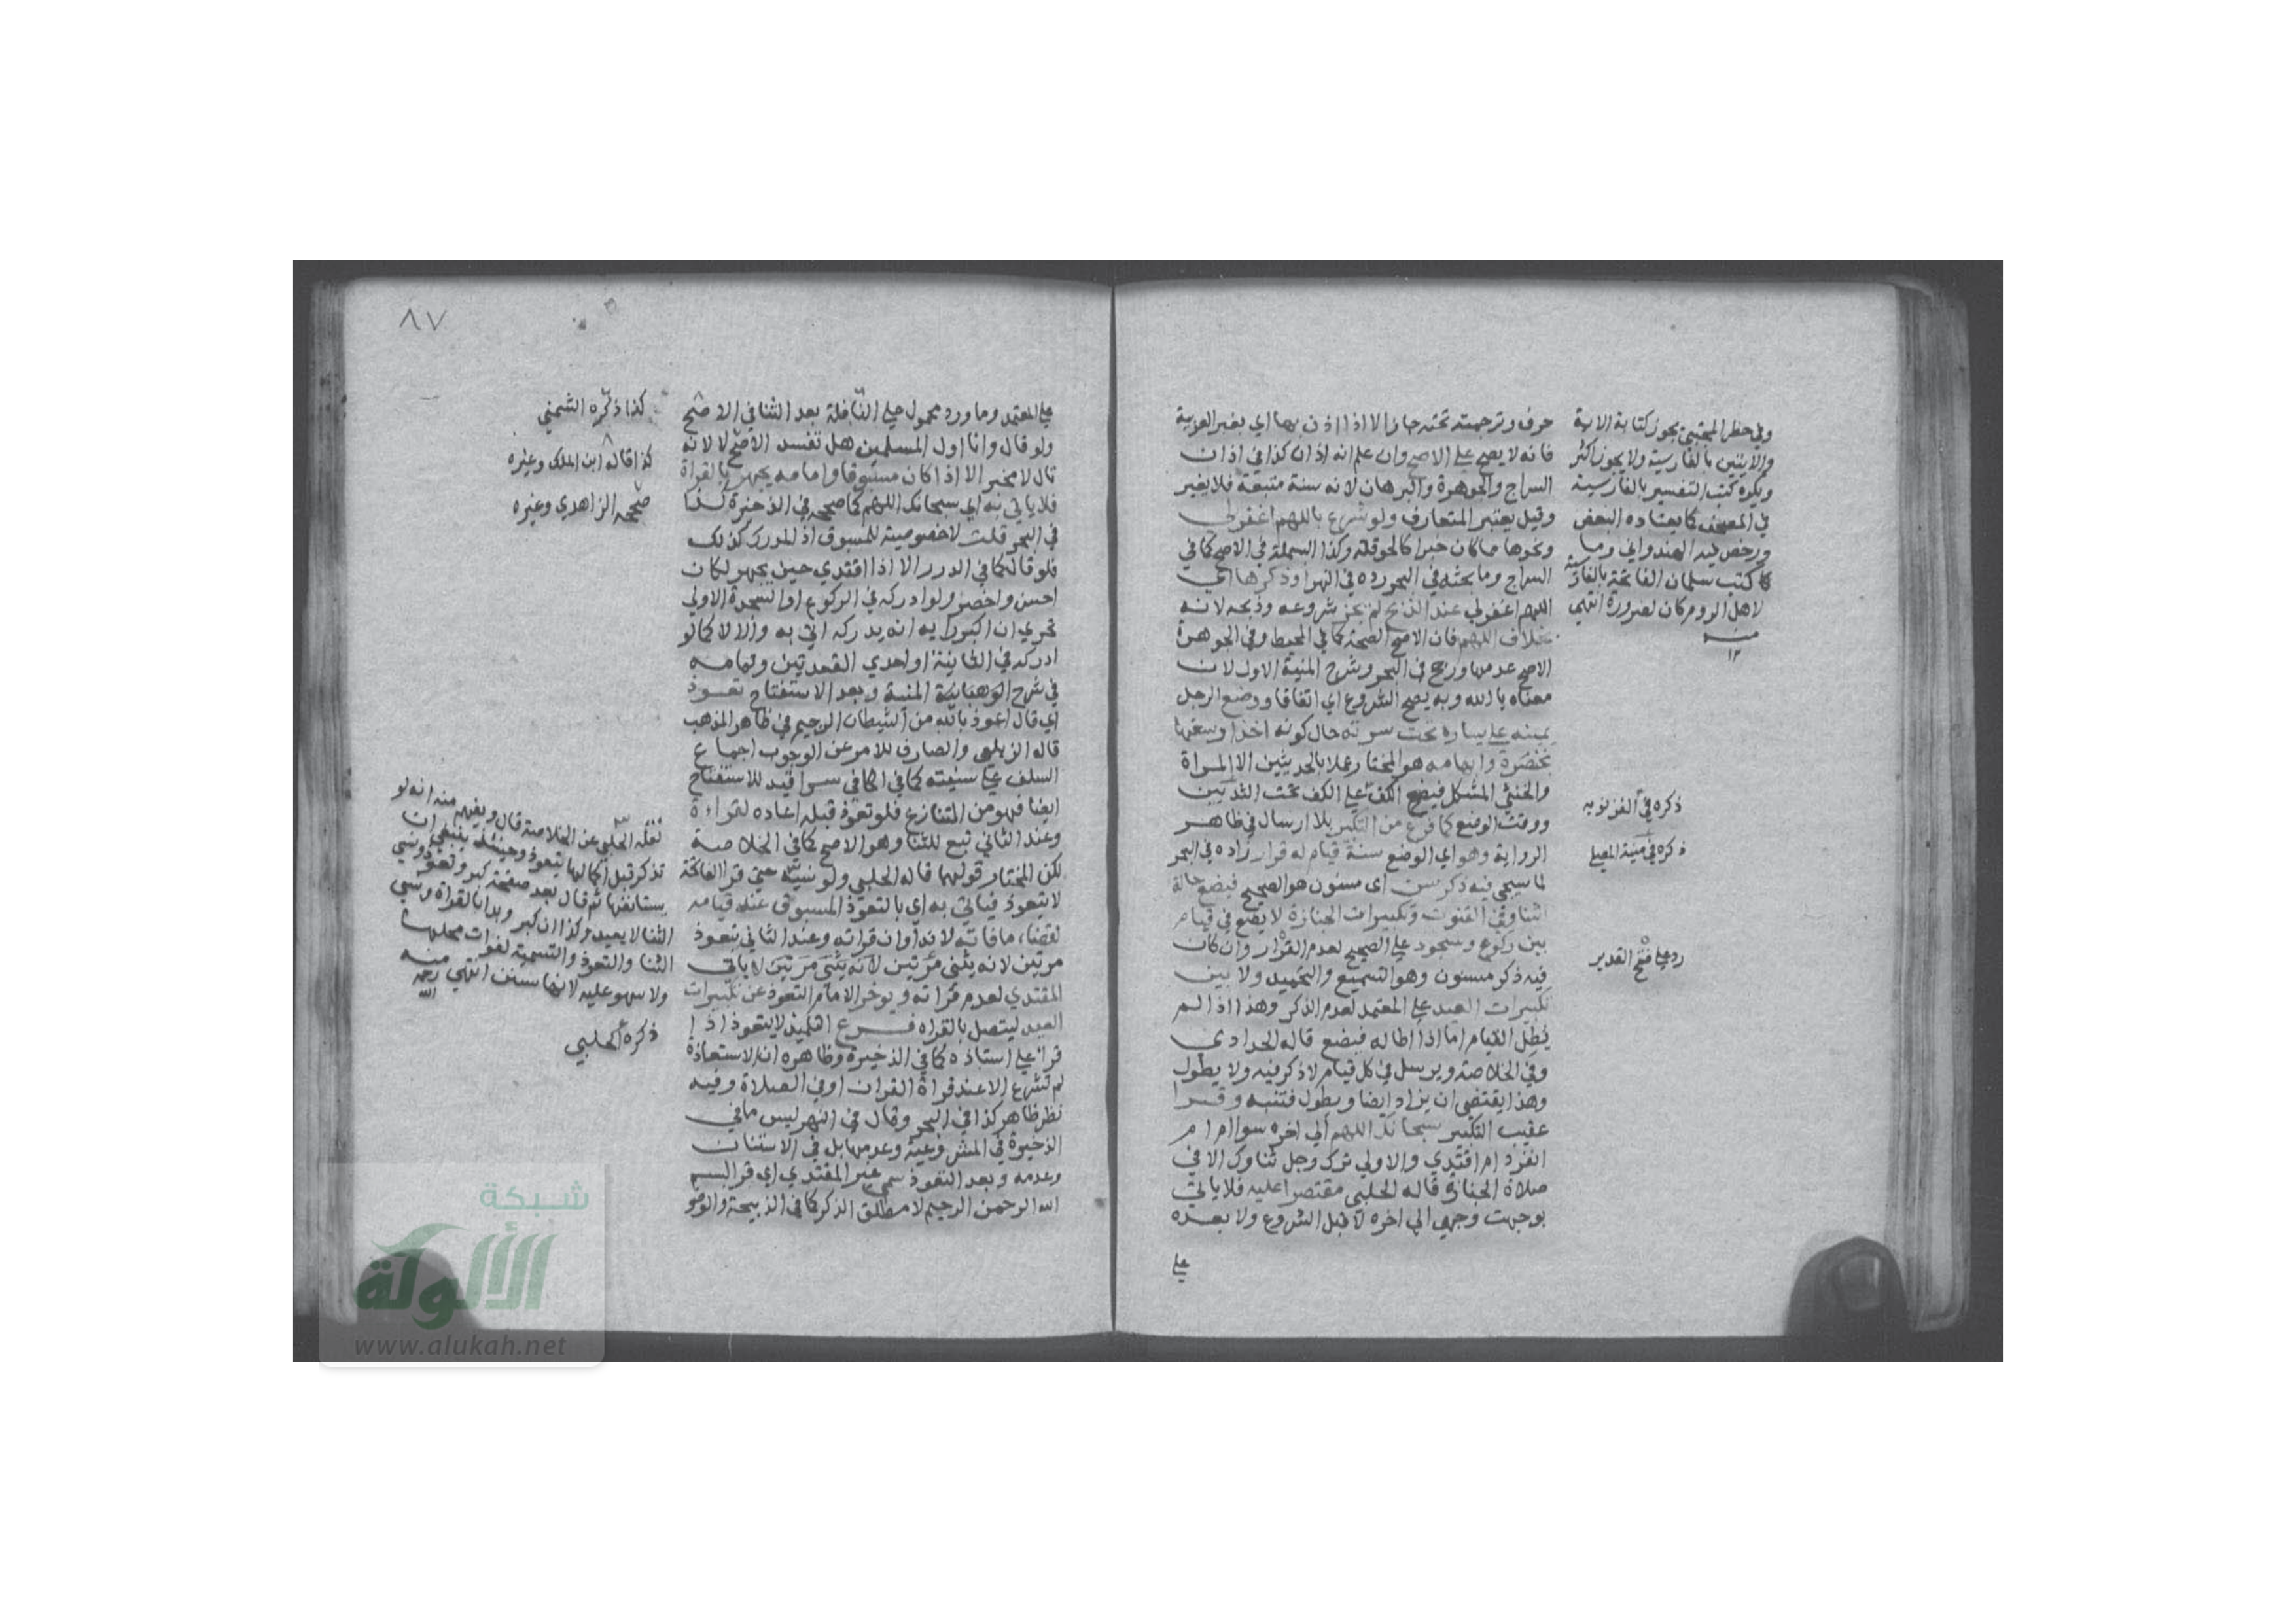 حرف وترجمته تحته جاز الا اذا اذن بها اي بغير العربية
فانه لا يصح على الاصح وان علم انه اذان كذا في اذان
السراج والجوهرة والبرهان لانه سنة متبعة فلا يغير
وقيل يعتبر المتعارف ولو شرع باللهم اغفر لي
ونحوها مما كان خبرا كالحوقلة وكذا البسملة في الاصح كما في
السراج وما بحثه في البحر رده في النهر او ذكرها اي
اللهم اغفر لي عند الذبح لم يجز شروعه وذبحه لانه
بخلاف اللهم فان الاصح الصحة كما في المحيط وفي الجوهرة
الاصح عدمها ورجح في البحر وشرح المنية الاول لان
معناه يا الله وبه يصح الشروع اي اتفاقا ووضع الرجل
يمينه على يساره تحت سرته حال كونه اخذا رسغها
بخنصره وابهامه هو المختار عملا بالحديثين الا المراة
والخنثى المشكل فيضع الكف على الكف تحت الثديين
ووقت الوضع كما فرغ من التكبير بلا ارسال في ظاهر
الرواية وهو اي الوضع سنة قيام له قرار زاده في البحر
لما سيجي فيه ذكر سن اي مسنون هو الصحيح فيضع حالة
الثنا وفي القنوت وتكبيرات الجنازة لا يضع في قيام
بين ركوع وسجود على الصحيح لعدم القرار وان كان
فيه ذكر مسنون وهو التسميع والتحميد ولا بين
تكبيرات العيد على المعتمد لعدم الذكر وهذا اذا لم
يطل القيام اما اذا اطاله فيضع قاله الحدادي
وفي الخلاصة ويرسل في كل قيام لا ذكر فيه ولا يطول
وهذا يقتضي ان يزاد ايضا ويطول فتنبه وقرا
عقيب التكبير سبحانك اللهم الى اخره سوا ام ام
انفرد ام اقتدي والاولى ترك وجل ثناوك الا في
صلاة الجنازة قاله الحلبي مقتصرا عليه فلا ياتي
بوجهت وجهي الى اخره لا قبل الشروع ولا بعده
على
وفي حظر المجتبى يجوز كتابة الاية
والايتين بالفارسية ولا يجوز اكثر
ويكره كتب التفسير بالفارسية
في المصحف كما يعتاده البعض
ورخص فيه الهندواني وما
كتب سلمان الفاتحة بالفارسية
لاهل الروم كان لضرورة انتهى
منه
١٢
ذكره في الغزنوية
ذكره في منية المصلي
رد على فتح القدير
٨٧
على المعتمد وما ورد محمول على النافلة بعد الثنا في الاصح
ولو قال وانا اول المسلمين هل تفسد الاصح لا لانه
تال لا مخبر الا اذا كان مسبوقا وامامه يجهر بالقراة
فلا ياتي به اي سبحانك اللهم كما صححه في الذخيرة كذا
في البحر قلت لا خصوصية للمسبوق اذ المدرك كذلك
فلو قال كما في الدرر الا اذا اقتدي حين يجهر لكان
احسن واخصر ولو ادركه في الركوع او السجدة الاولى
تحري ان اكبر رايه انه يدركه اتى به والا لا كما لو
ادركه في الثانية او احدي القعدتين وتمامه
في شرح الوهبانية المنية وبعد الاستفتاح تعوذ
اي قال اعوذ بالله من الشيطان الرجيم في ظاهر المذهب
قاله الزيلعي والصارف للامر عن الوجوب اجماع
السلف على سنيته كما في الكافي سرا قيد للاستفتاح
ايضا فهو من التنازع فلو تعوذ قبله اعاده لقراءة
وعند الثاني تبع للثنا وهو الاصح كما في الخلاصة
لكن المختار قولهما قاله الحلبي ولو نسيه حتى قرا الفاتحة
لا يتعوذ فياتي به اي بالتعوذ المسبوق عند قيامه
لقضاء ما فاته لانه اوان قراته وعند الثاني يتعوذ
مرتين لانه يثني مرتين لانه يثني مرتين لا ياتي
المقتدي لعدم قراته ويوخر الامام التعوذ عن تكبيرات
العيد ليتصل بالقراه فرع التلميذ لا يتعوذ اذا
قرا على استاذه كما في الذخيرة وظاهره ان الاستعاذة
لم تشرع الا عند قراة القران او في الصلاة وفيه
نظر ظاهر كذا في البحر وقال في النهر ليس ما في
الذخيرة في المشروعية وعدمها بل في الاستنان
وعدمه وبعد التعوذ سمى غير المقتدي اي قرا بسم
الله الرحمن الرحيم لا مطلق الذكر كما في الذبيحة والوضو
كذا ذكره الشمني
كذا قاله ابن الملك وغيره
صححه الزاهدي وغيره
نقله الحلبي عن الخلاصة قال ويفهم منه انه لو
تذكر قبل اكمالها يتعوذ وحينئذ ينبغي ان
يستانفها ثم قال بعد صفحة كبر وتعوذ ونسي
الثنا لا يعيد وكذا ان كبر وبدا بالقراة ونسي
الثنا والتعوذ والتسمية لفوات محلها
ولا سهو عليه لانها سنن انتهى منه رحمه الله
ذكره الحلبي
شبكة
الألوكة
www.alukah.net